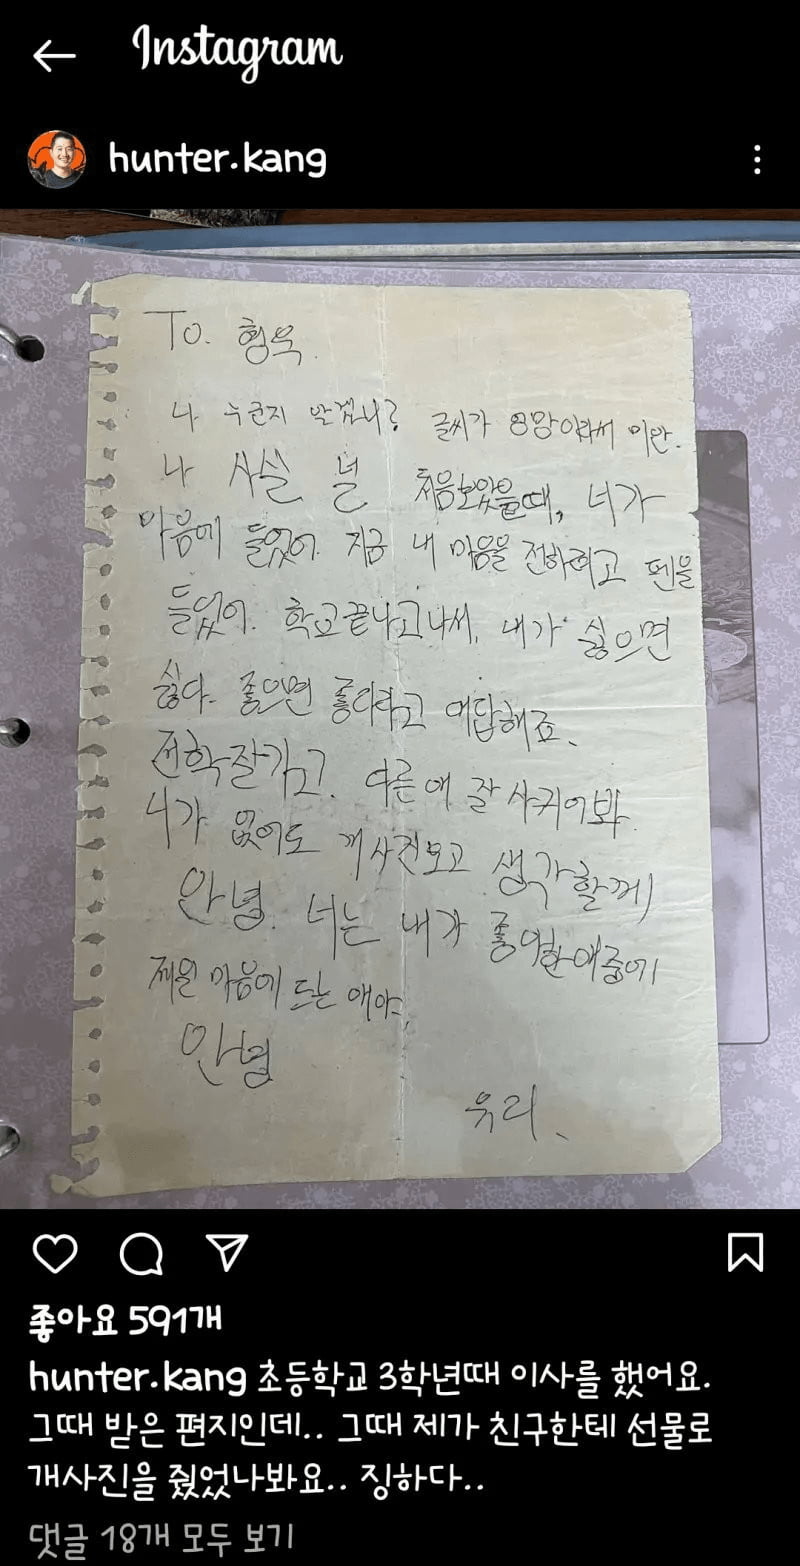 Instagram
hunter.kang
To. 형욱.
나 누군지 알겠니? 글씨가 엉망이라서 미안.
나 사실 널 처음보았을때, 너가
마음에 들었어. 지금 내 마음을 전하려고 펜을
들었어. 학교끝나고나서, 내가 싫으면
싫다. 좋으면 좋다라고 대답해죠.
전학잘가고. 다른애 잘 사귀어봐.
너가 없어도 개사진보고 생각할께
안녕. 너는 내가 좋아한애중에
제일 마음에 드는 애야.
안녕
유리.
좋아요 591개
hunter.kang 초등학교 3학년때 이사를 했어요.
그때 받은 편지인데.. 그때 제가 친구한테 선물로
개사진을 줬었나봐요.. 징하다..
댓글 18개 모두 보기